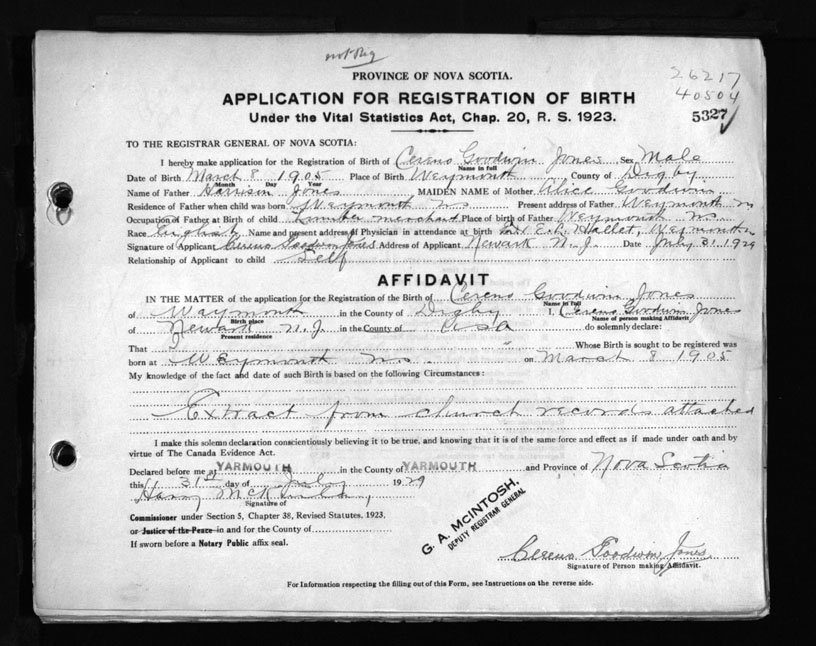 not Reg
PROVINCE OF NOVA SCOTIA.
26217
40504
5327
APPLICATION FOR REGISTRATION OF BIRTH
Under the Vital Statistics Act, Chap. 20, R. S. 1923.
TO THE REGISTRAR GENERAL OF NOVA SCOTIA:
I hereby make application for the Registration of Birth of Cereno Goodwin Jones Sex Male
Name in full
Date of Birth March 8 1905 Place of Birth Weymouth County of Digby
Month Day Year
Name of Father Harrison Jones MAIDEN NAME of Mother Alice Goodwin
Residence of Father when child was born Weymouth Ns Present address of Father Weymouth Ns
Occupation of Father at Birth of child Lumber merchant Place of birth of Father Weymouth Ns.
Race English Name and present address of Physician in attendance at birth Hallet, Weymouth
Signature of Applicant Cereno Goodwin Jones Address of Applicant Newark N.J. Date July 31. 1929
Relationship of Applicant to child Self
AFFIDAVIT
IN THE MATTER of the application for the Registration of the Birth of Cereno Goodwin Jones
Name in full
of Waymouth in the County of Digby I, Cereno Goodwin Jones
Birth place Name of person making Affidavit
of Newark N.J. in the County of USA do solemnly declare:
Present residence
That " Whose Birth is sought to be registered was
born at Weymouth Ns. on March 8 1905
My knowledge of the fact and date of such Birth is based on the following Circumstances:
Extract from church records attached
I make this solemn declaration conscientiously believing it to be true, and knowing that it is of the same force and effect as if made under oath and by
virtue of The Canada Evidence Act.
Declared before me at YARMOUTH in the County of YARMOUTH and Province of Nova Scotia
this 31st day of July 1929
Harry McKinlay
Signature of
Commissioner under Section 5, Chapter 38, Revised Statutes, 1923.
or Justice of the Peace in and for the County of
If sworn before a Notary Public affix seal.
G. A. McINTOSH,
DEPUTY REGISTRAR GENERAL
Cereno Goodwin Jones
Signature of Person making Affidavit.
For Information respecting the filling out of this Form, see Instructions on the reverse side.